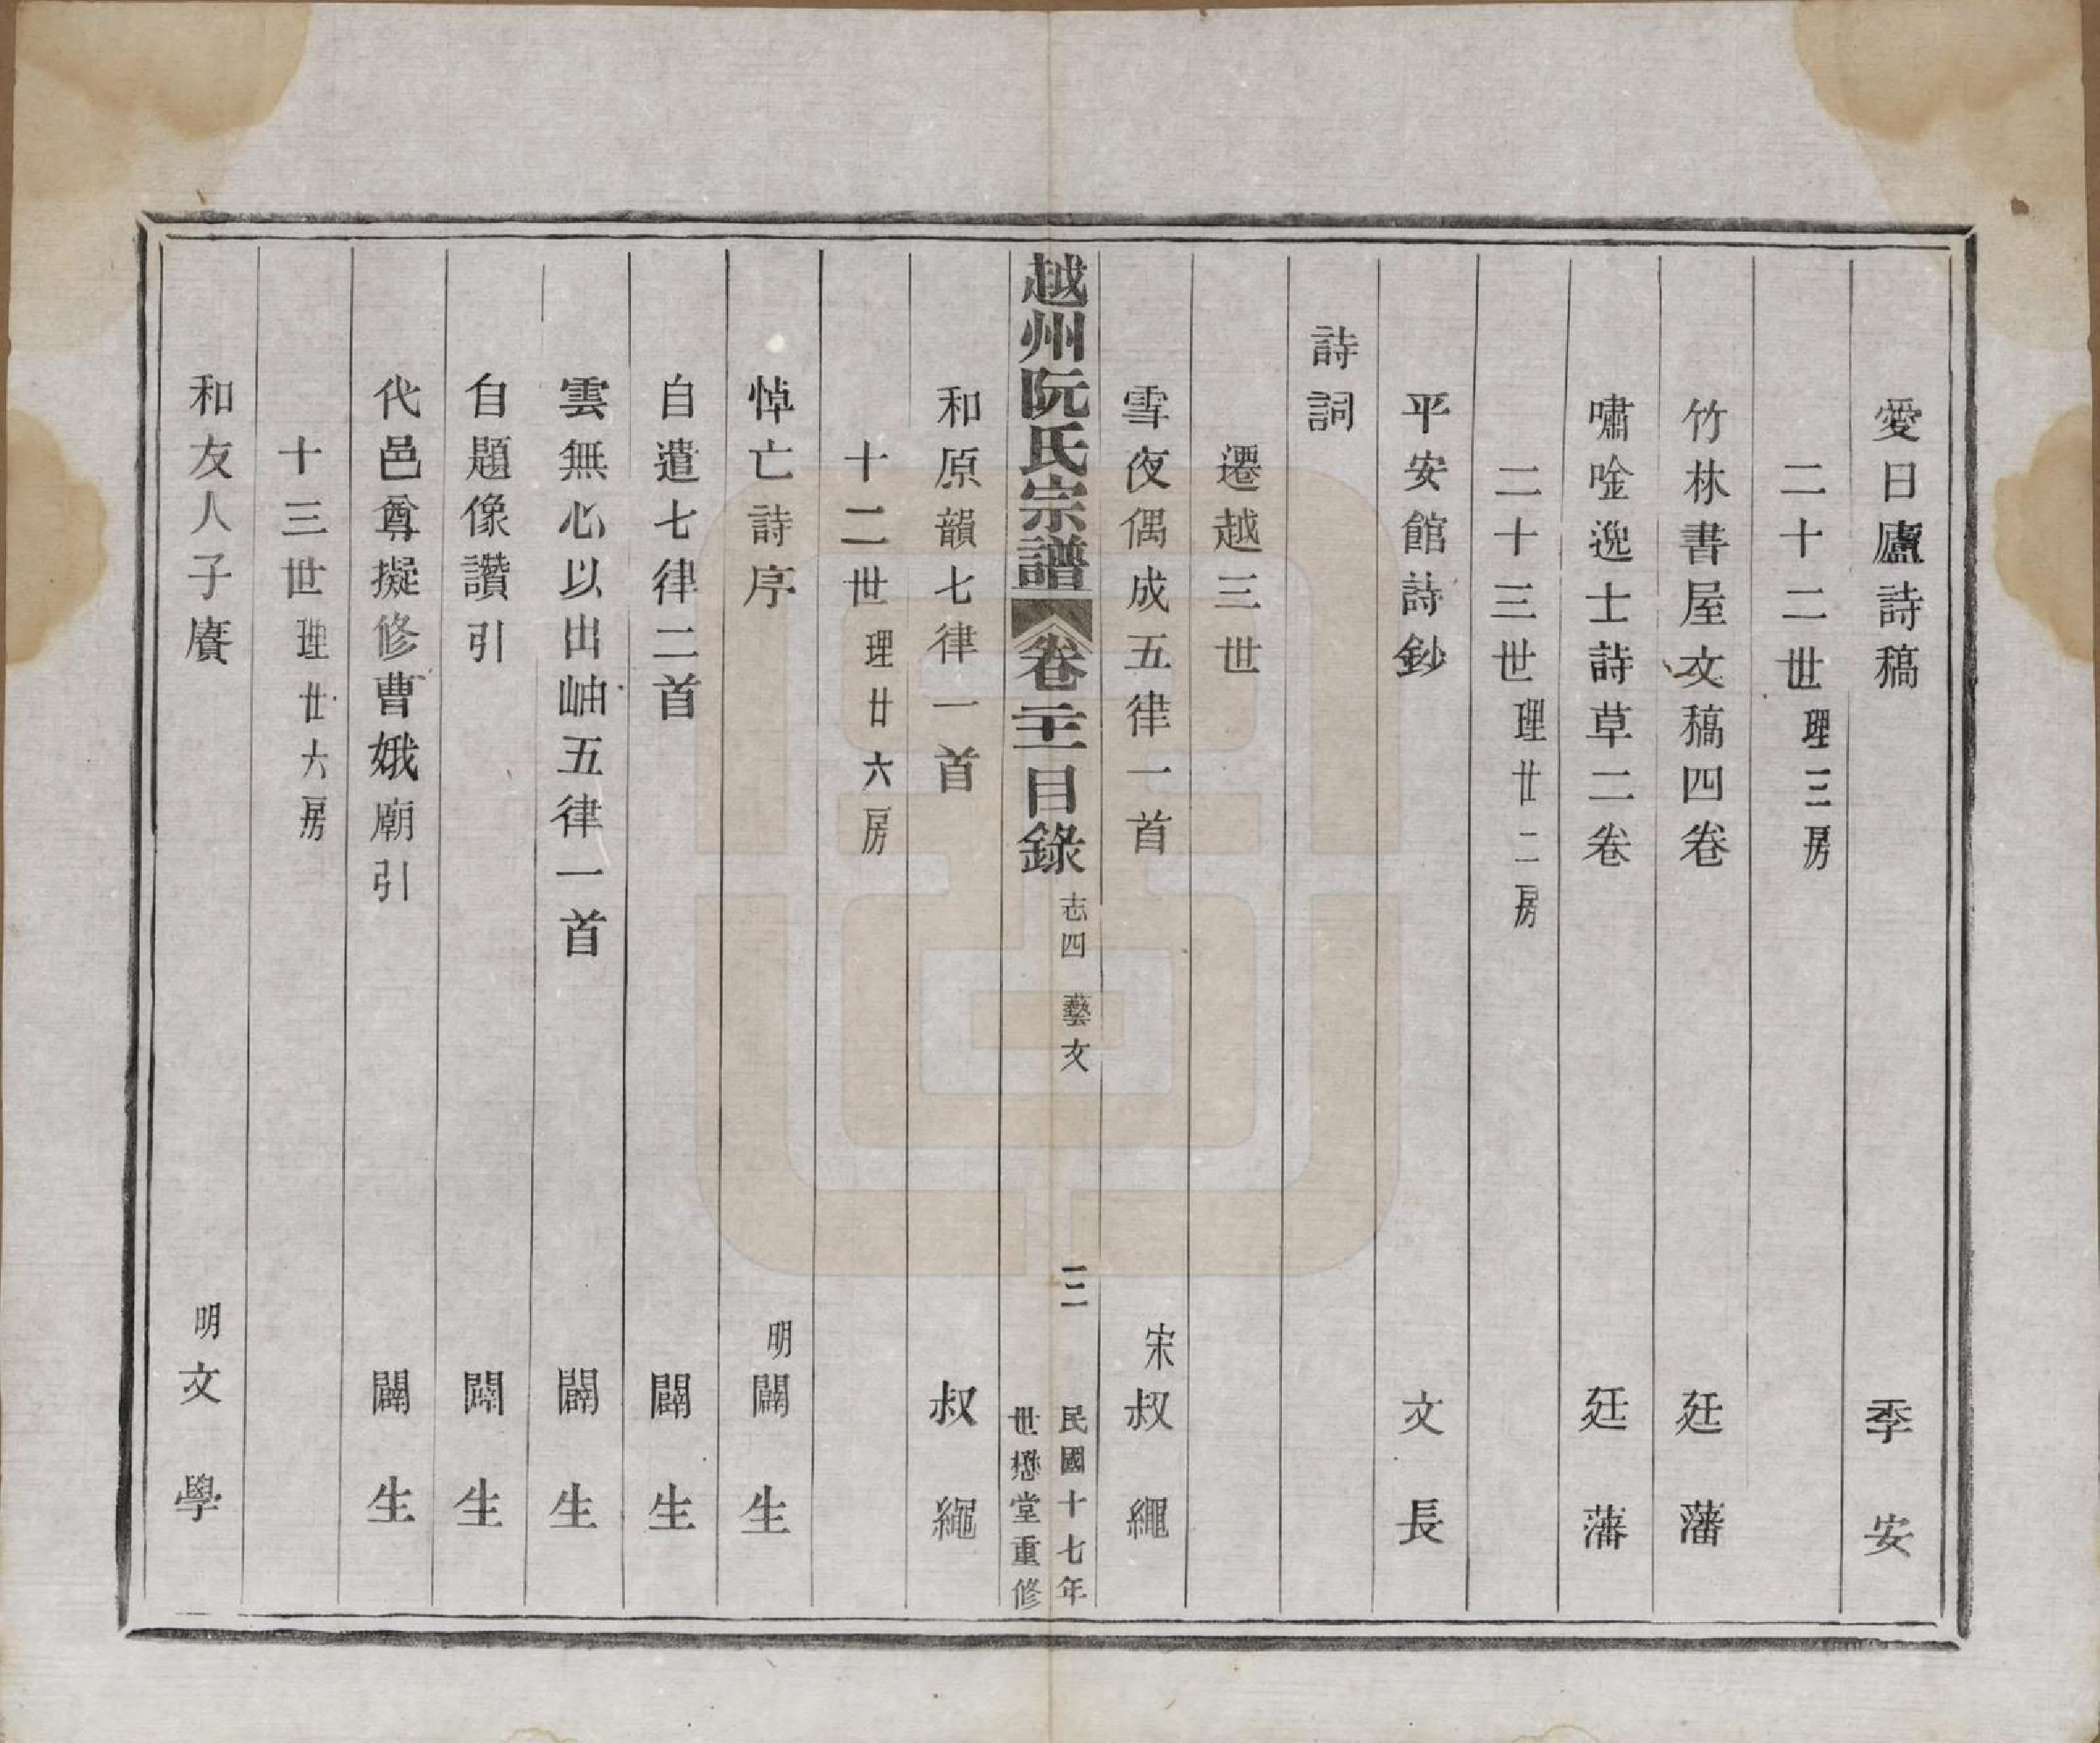 愛日廬詩稿 季安
二十二世理三房
竹林書屋文稿四卷 廷藩
嘯唫逸士詩草二卷 廷藩
二十三世理廿二房
平安館詩鈔 文長
詩詞
遷越三世
雪夜偶成五律一首 宋叔繩
越州阮氏宗譜 卷二十一目錄 志四 藝文 三 民國十七年
世懋堂重修
和原韻七律一首 叔繩
十二世理廿六房
悼亡詩序 明闢生
自遣七律二首 闢生
雲無心以出岫五律一首 闢生
自題像讚引 闢生
代邑尊擬修曹娥廟引 闢生
十三世理廿六房
和友人子賡 明文學